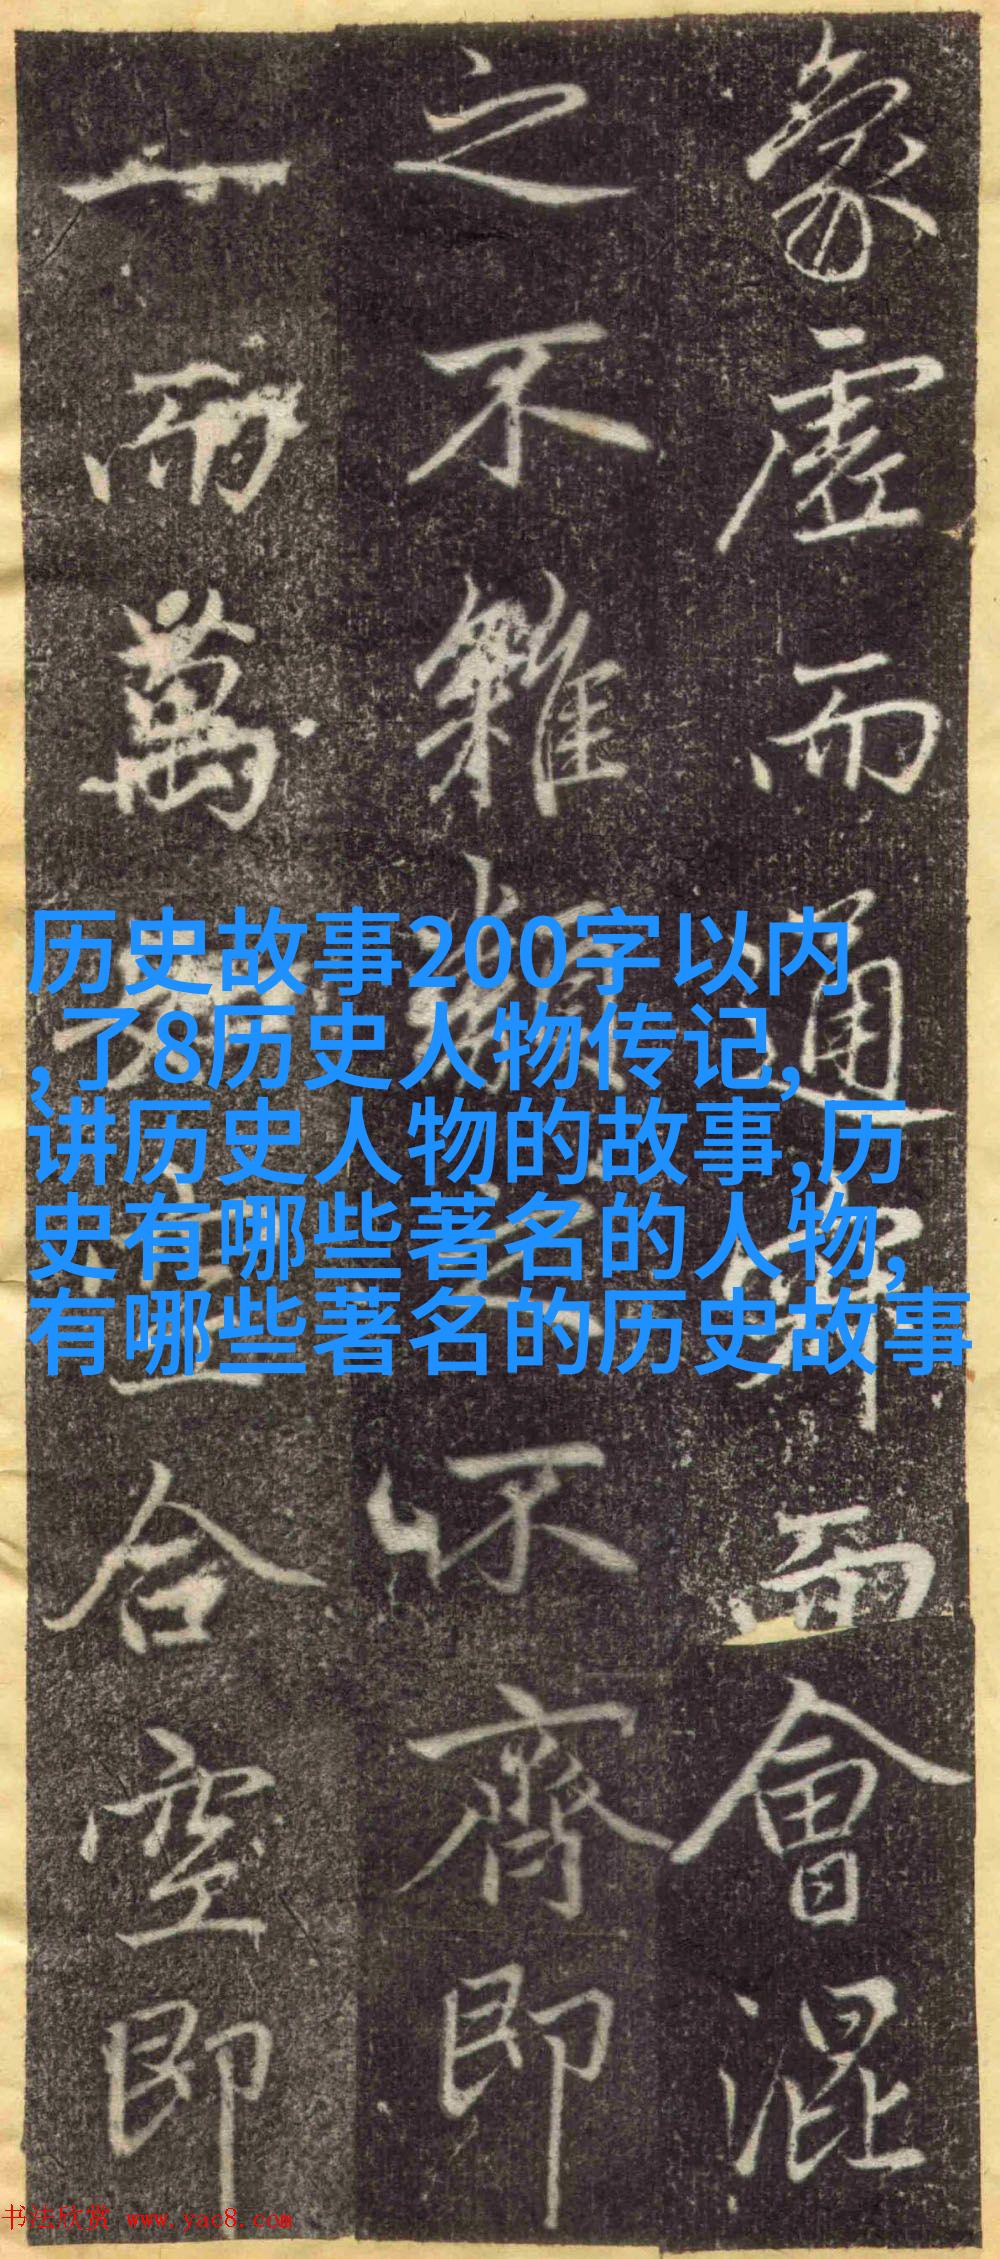 象虛而通而會混
之不雜之不齊即
一而萬合空即
历史故事200字以内
,了8历史人物传记,
讲历史人物的故事,历
史有哪些著名的人物,
有哪些著名的历史故事
书法欣赏 www.yac8.com